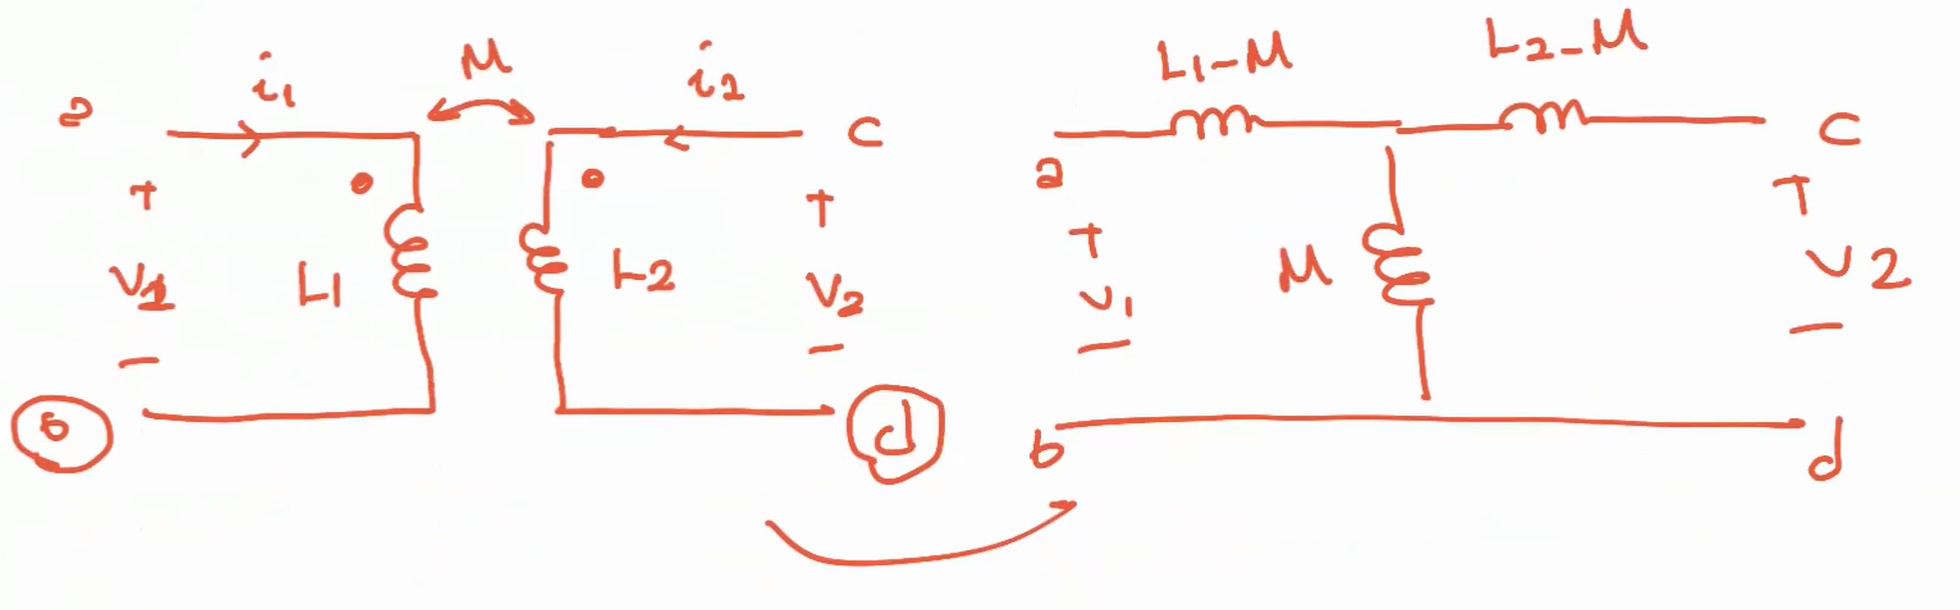 M
i1
i2
a
c
+
V1
-
L1
L2
+
V2
-
b
d
L1-M
L2-M
a
c
+
V1
-
M
+
V2
-
b
d